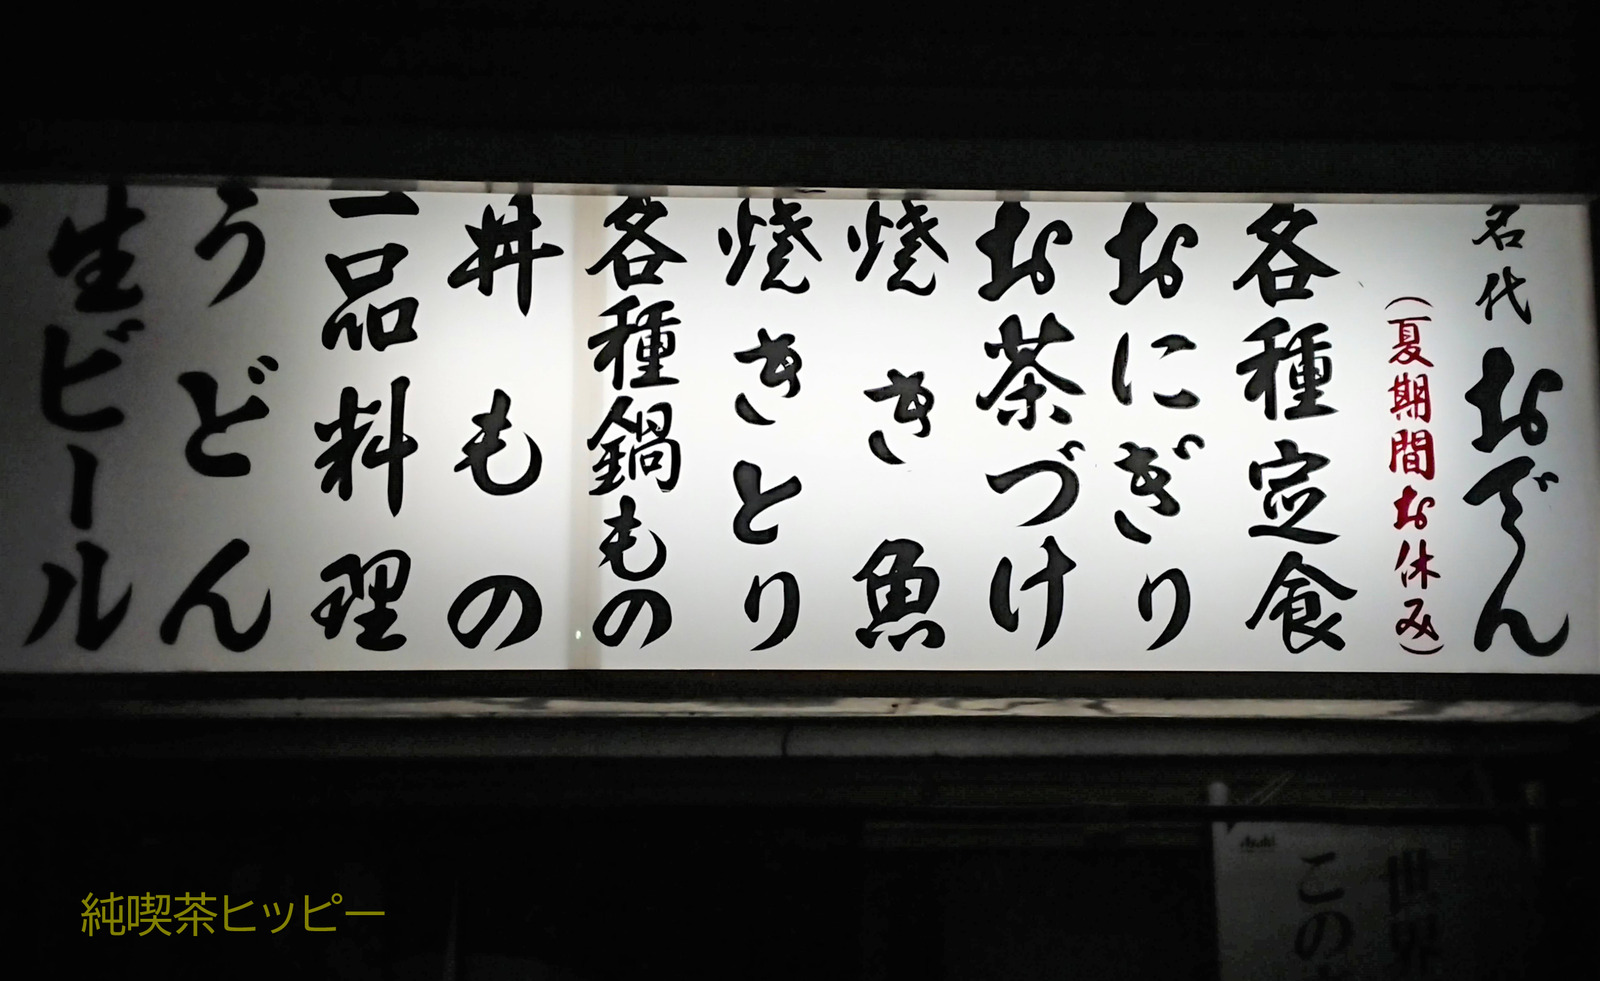 名代おでん
(夏期間お休み)
各種定食
おにぎり
お茶づけ
焼き魚
焼きとり
各種鍋もの
丼もの
一品料理
うどん
生ビール
Asahi
世界
この
純喫茶ヒッピー